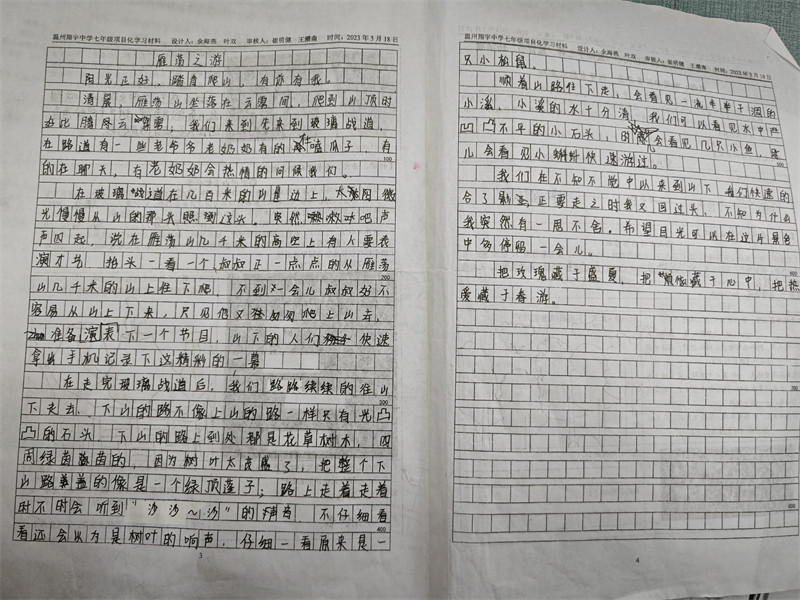 温州翔宇中学七年级项目化学习材料 设计人：余海燕 叶双 审核人：崔倍健 王耀南 时间：2023年3月18日
雁荡之游
阳光正好，踏青爬山，有你有我。
清晨，雁荡山坐落在云雾间，爬到山顶的
好比腾云驾雾，我们来到先来到玻璃战道，
在路道有一些老爷爷老奶奶有的在嗑瓜子，有
的在聊天，有老奶奶会热情的问候我们。
在玻璃战道在几百米的山崖边上，微
光慢慢从山的那头照到这头。突然，吼叫声
声四起，说在雁荡山几千米的高空上有人要表
演才艺 抬头一看一个叔叔正一点点的从雁荡
山几千米的山上往下爬，不到一会儿叔叔好不
容易从山上下来，只见他又匆匆爬上山去，
准备演表下一个节目，山下的人们快速
拿出手机记录下这精彩的一幕
在走完玻璃战道后，我们陆陆续续的往山
下走去，下山的路不像上山的路一样只有光凸
凸的石头，下山的路上到处都是花草树木，四
周绿茵茵的，因为树叶太茂盛了，把整个下
山路盖的像是一个绿顶莲子；路上走着走着
时不时会听到“沙沙～沙”的声音，不仔细看
看还会以为是树叶的响声，仔细一看原来是一
3
温州翔宇中学七年级项目化学习材料 设计人：余海燕 叶双 审核人：崔倍健 王耀南 时间：2023年3月18日
只小松鼠。
顺着山路往下走，会看见一流半干涸的
小溪，小溪的水十分清，我们可以看见水中严
凹凸不平的小石头，时会看见几只小鱼，
儿会看见小蝌蚪快速游过。
我们在不知不觉中以来到山下 我们快速的
合了影，正要走之时我又回过头，不知为什么
我突然有一思不舍。希望目光可以在这片景色
中多停留一会儿。
把玫瑰藏于盛夏，把烦恼藏于心中，把热
爱藏于春游。
4